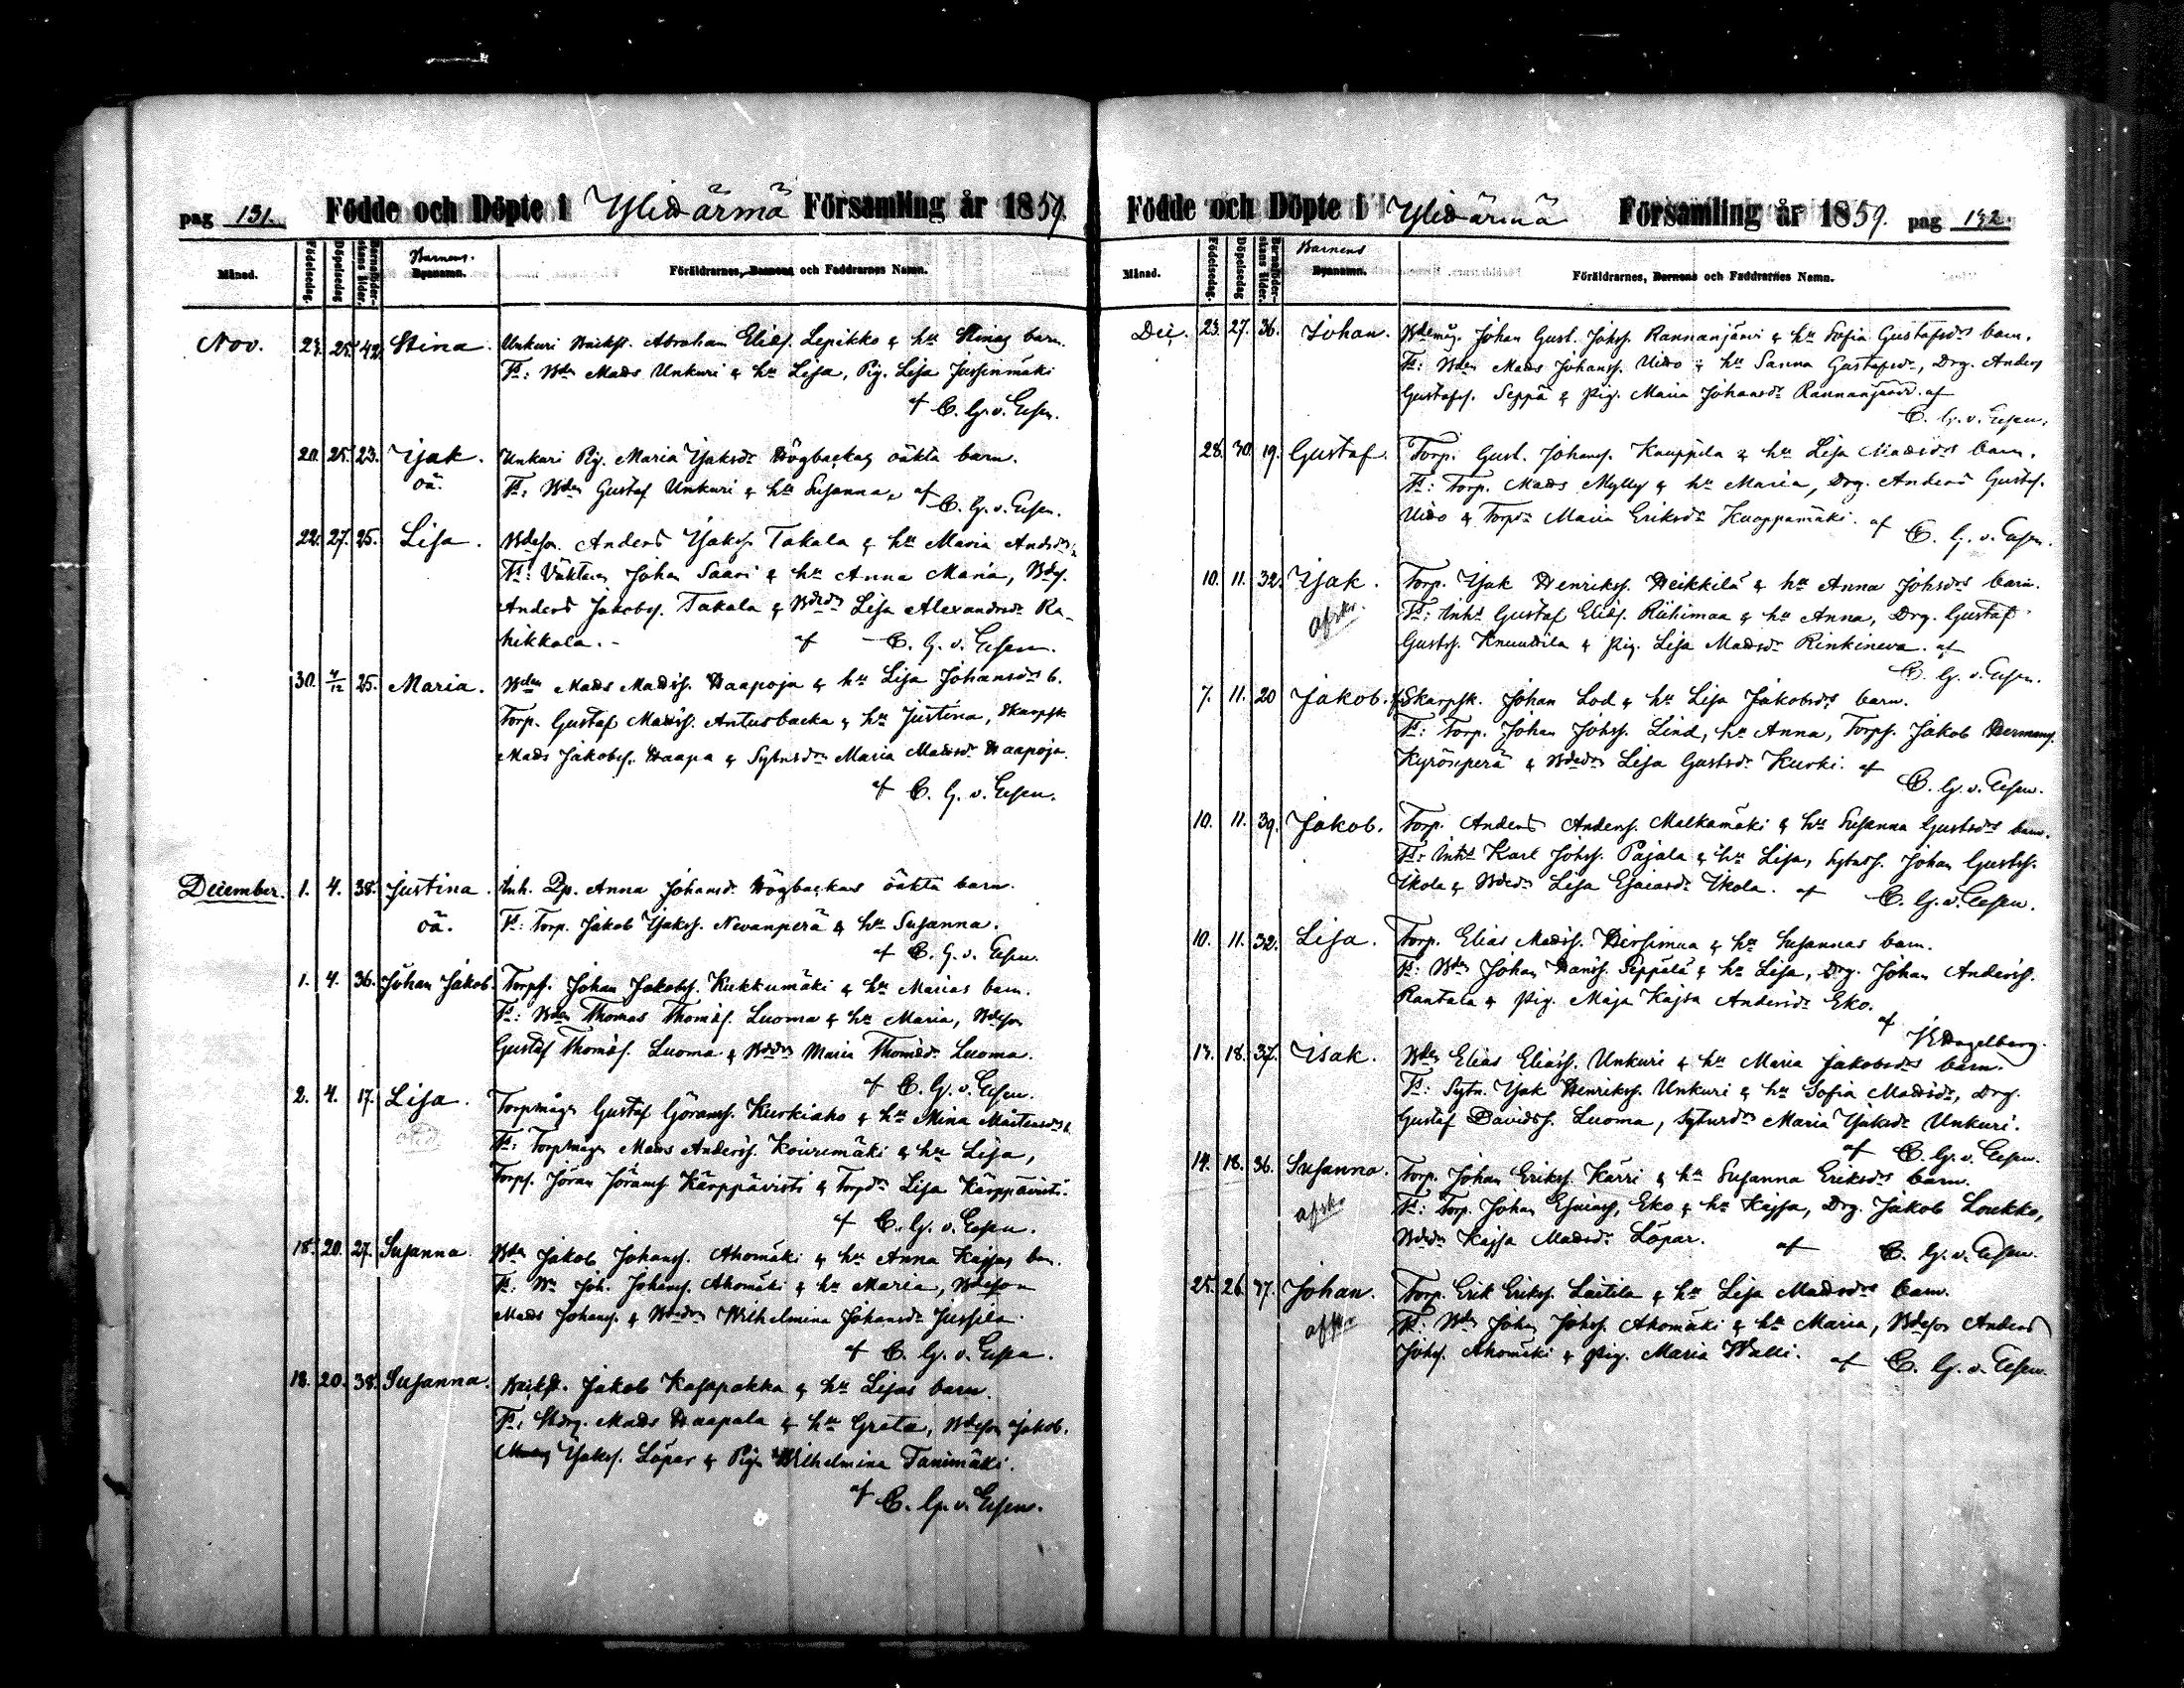 pag 131. Födde och Döpte i Ylihärmä Församling år 1859.
Månad. Födelsedag. Döpelsedag Barnaföderskans ålder. Barnens. Byanamn. Föräldrarnes, Barnens och Faddrarnes Namn.
Nov. 23. 25. 42. Stina. Unkuri Backst. Abraham Eliæs. Lepikko & hu Stinas barn.
Ft: Bdn Mads Unkuri & hu Lisa, Pig. Lisa Jussinmäki
af C. G. v. Essen.
20. 25. 23. Isak. Unkuri Pig. Maria Isaksdr Högbackas oäkta barn.
oä. Ft: Bdn Gustaf Unkuri & hu Susanna, af
C. G. v. Essen.
22. 27. 25. Lisa. Bdeson Anders Isaks. Takala & hu Maria Andsdrs
Ft: Johan Saari & hu Anna Maria, Bdes.
Anders Jakobs. Takala & Bdedr Lisa Alexandersdr Ra-
hikkala. - af C. G. v. Essen.
30. 4/12 25. Maria. Bdn Mads Madss. Haapoja & hu Lisa Johansdrs b.
Torp. Gustaf Madss. Antusbacka & hu Justina, Skarpsk.
Mads Jakobss. Haapa & Sytnsdr Maria Madsdr Haapoja.
af C. G. v. Essen.
December. 1. 4. 38. Justina. Inh. Qp. Anna Johansdr Högbackas oäkta barn.
oä. Ft: Torp. Jakob Isakss. Nevanperä & hu Susanna.
af C. G. v. Essen.
1. 4. 36. Johan Jakob. Torps. Johan Jakobs. Kukkumäki & hu Marias barn.
Ft: Bdn Thomas Thomæs. Luoma & hu Maria, Bdeson
Gustaf Thomæs. Luoma & Bddr Maria Thomædr Luoma.
af C. G. v. Essen.
2. 4. 17. Lisa. Torpmåg Gustaf Görans. Kurkiaho & hu Mina Mårtensdrs b.
Ft: Torpmåg Mads Anderss. Koiremäki & hu Lisa,
Torps. Jöran Jörans. Kärppävisti & Torpdr Lisa Kärppävisti.
af C. G. v. Essen.
18. 20. 27. Susanna. Bdn Jakob Johans. Ahomäki & hu Anna Kajsas bn.
Ft: Bn Joh. Johans. Ahomäki & hu Maria, Bdeson
Mads Johans. & Bdedr Wilhelmina Johansdr Jussila.
af C. G. v. Essen.
18. 20. 38. Susanna. Backst. Jakob Kasapakka & hu Lisas barn.
Ft: Mads Haapala & hu Greta, Bdeson Jakob.
Isakss. Löpar & Pig. Wilhelmina Tanimäki.
af C. G. v. Essen.
Födde och Döpte i Ylihärmä Församling år 1859. pag 132.
Månad. Födelsedag. Döpelsedag Barnaföderskans ålder. Barnens Byanamn. Föräldrarnes, Barnens och Faddrarnes Namn.
Dec. 23. 27. 36. Johan. Bdemåg. Johan Gust. Johss. Rannanjärvi & hu Sofia Gustafsdrs barn.
Ft: Bden Mads Johanss. Uido & hu Sanna Gustafsdr, Drg. Anders
Gustafs. Seppä & Pig. Maria Johansdr Rannanjärvi. af
C. G. v. Essen.
28. 30. 19. Gustaf. Torp. Gust. Johans. Kauppila & hu Lisa Madsdrs barn.
Ft: Torp. Mads Mylly & hu Maria, Drg. Anders Gustaf.
Uido & Torpdr Maria Eriksdr Kuoppamäki. af C. G. v. Essen.
10. 11. 32. Isak. Torp. Isak Henrikss. Heikkilä & hu Anna Johsdrs barn.
Ft: Inhs Gustaf Eliæs. Riihimaa & hu Anna, Drg. Gustaf
Gusts. Knuuttila & Pig. Lisa Madsdr Rinkineva. af
C. G. v. Essen.
7. 11. 20 Jakob. Skarpsk. Johan Lod & hu Lisa Jakobsdrs barn.
Ft: Torp. Johan Johss. Lind, hu Anna, Torps. Jakob Hermans.
Kyrönperä & Bdedr Lisa Gustsdr Kurki. af
C. G. v. Essen.
10. 11. 39. Jakob. Torp. Anders Anders. Malkamäki & hu Susanna Gustsdrs barn.
Ft: Inhs Karl Johss. Pajala & hu Lisa, Sytnss. Johan Gustss.
Ikola & Bdedr Lisa Esaiasdr Ikola. af C. G. v. Essen.
10. 11. 32. Lisa. Torp. Elias Madss. Hirsimaa & hu Susannas barn.
Ft: Bdn Johan Hanss. Seppälä & hu Lisa, Drg. Johan Anderss.
Rantala & Pig. Maja Kajsa Andersdr Eko.
af
13. 18. 37. Isak. Bdn Elias Eliass. Unkuri & hu Maria Jakobsdrs barn.
Ft: Sytn. Isak Henrikss. Unkuri & hu Sofia Madsdr, Drg.
Gustaf Davidss. Luoma, Sytnsdr Maria Isaksdr Unkuri.
af C. G. v. Essen.
14. 18. 36. Susanna. Torp. Johan Erikss. Karri & hu Susanna Eriksdrs barn.
Ft: Torp. Johan Esaiass. Eko & hu Kajsa, Drg. Jakob Loukko,
Bdedr Kajsa Madsdr Löpar. af C. G. v. Essen.
25. 26. 37. Johan. Torp. Erik Erikss. Laitila & hu Lisa Madsdrs barn.
Ft: Bdn Johan Johss. Ahomäki & hu Maria, Bdeson Anders
Johss. Ahomäki & Pig. Maria Walli. af C. G. v. Essen.